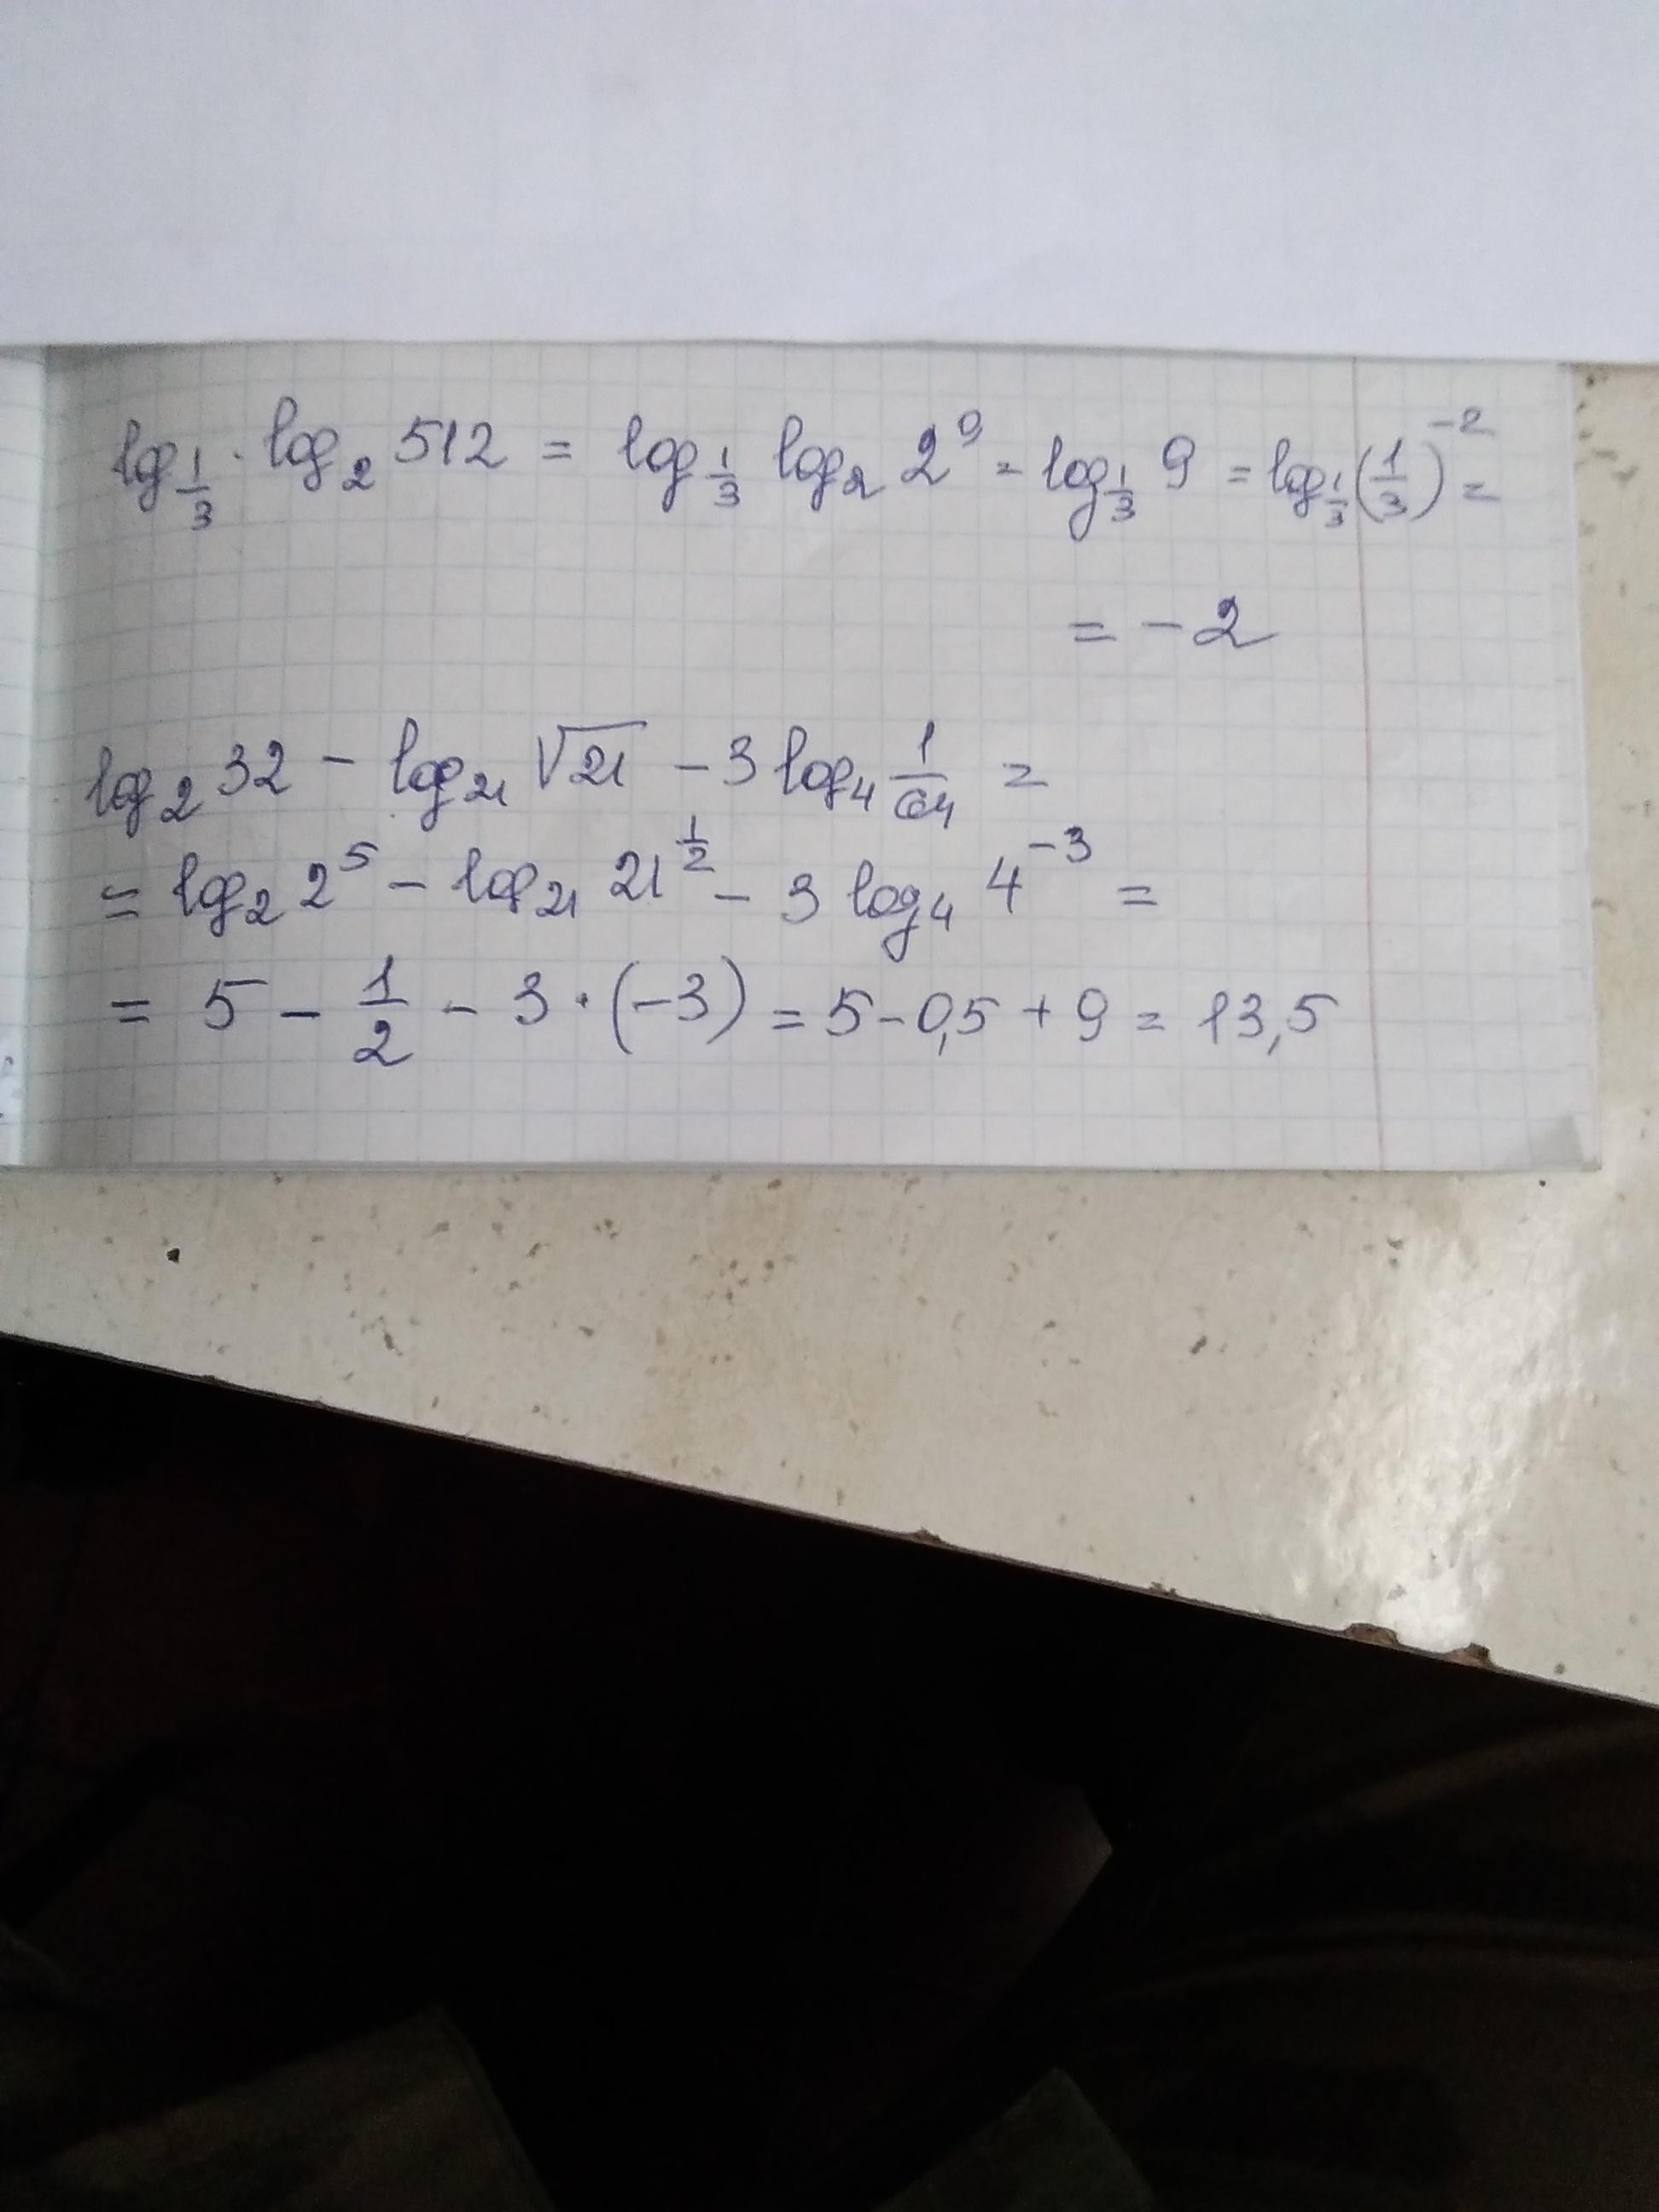 log_{1/3} · log_2 512 = log_{1/3} log_2 2^9 = log_{1/3} 9 = log_{1/3} (1/3)^{-2} =
= -2
log_2 32 - log_{21} √21 - 3 log_4 1/64 =
= log_2 2^5 - log_{21} 21^{1/2} - 3 log_4 4^{-3} =
= 5 - 1/2 - 3 · (-3) = 5 - 0,5 + 9 = 13,5